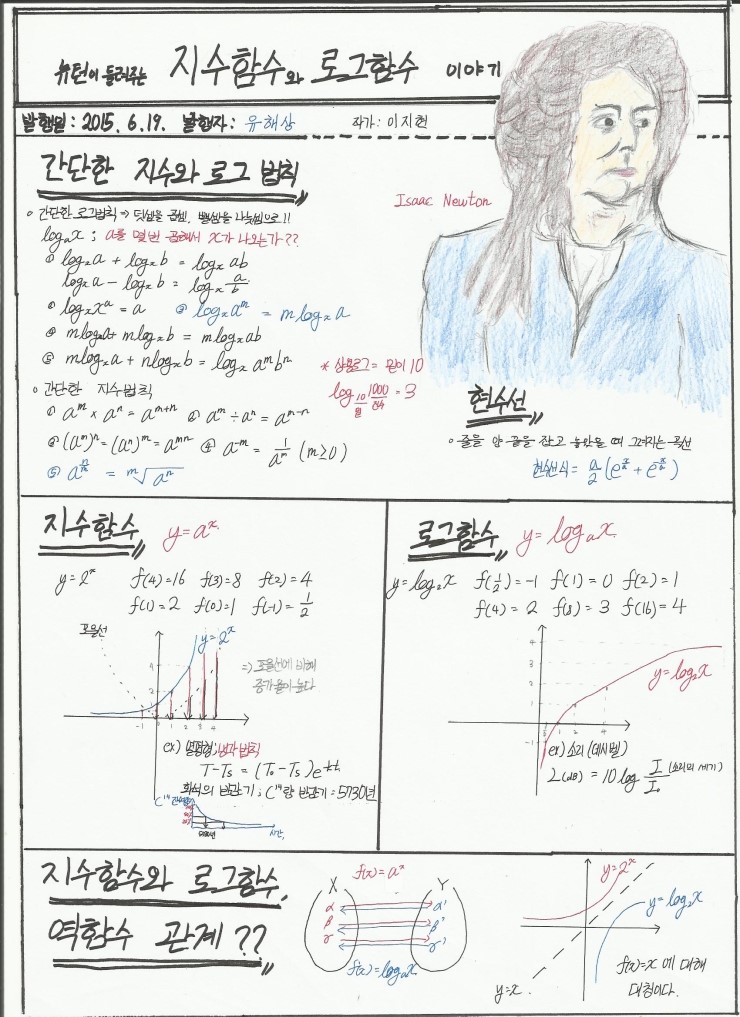 뉴턴이 들려주는 지수함수와 로그함수 이야기
발행일 : 2015. 6. 19. 발행자 : 유해상 작가 : 이지현
간단한 지수와 로그 법칙
Isaac Newton
○ 간단한 로그법칙 ⇒ 덧셈을 곱셈, 뺄셈을 나눗셈으로!!
logₐx ; a를 몇번 곱해서 x가 나오는가??
① logₓa + logₓb = logₓab
logₓa - logₓb = logₓ a/b
② logₓxᵃ = a ③ logₓaᵐ = mlogₓa
④ mlogₓa + mlogₓb = mlogₓab
⑤ mlogₓa + nlogₓb = logₓ aᵐbⁿ
* 상용로그 = 밑이 10
log 10 1000 = 3
밑 진수
○ 간단한 지수법칙
① aᵐ × aⁿ = aᵐ⁺ⁿ ② aᵐ ÷ aⁿ = aᵐ⁻ⁿ
③ (aᵐ)ⁿ = (aⁿ)ᵐ = aᵐⁿ ④ a⁻ᵐ = 1/aᵐ (m≥0)
⑤ a^(n/m) = ᵐ√aⁿ
현수선
○ 줄을 양 끝을 잡고 놓았을 때 그려지는 곡선
현수선식 = a/2 (e^(x/a) + e^(x/a))
지수함수 y = aˣ
y = 2ˣ f(4)=16 f(3)=8 f(2)=4
f(1)=2 f(0)=1 f(-1)=1/2
포물선
y=2ˣ
⇒ 포물선에 비해
증가율이 높다
4
2
-1 1 2 3 4
ex) 열평형;냉각법칙
T-Ts = (T₀-Ts)e^(-kt)
화석의 반감기 ; C¹⁴량 반감기 : 5730년
C¹⁴
시간
로그함수 y = logₐx
y=log₂x f(1/2)=-1 f(1)=0 f(2)=1
f(4)=2 f(8)=3 f(16)=4
y=log₂x
1 2 4
-1
ex) 소리 (데시벨)
L(dB) = 10 log I/I₀ (소리의 세기)
지수함수와 로그함수,
역함수 관계??
f(x)=aˣ
X Y
α α'
β β'
γ γ'
f(x)=logₐx
y=2ˣ
y=log₂x
y=x
f(x)=x 에 대해
대칭이다.